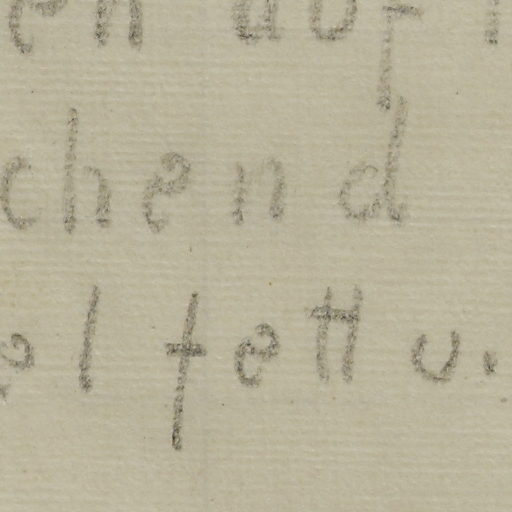 en auf
chend
el fett u.